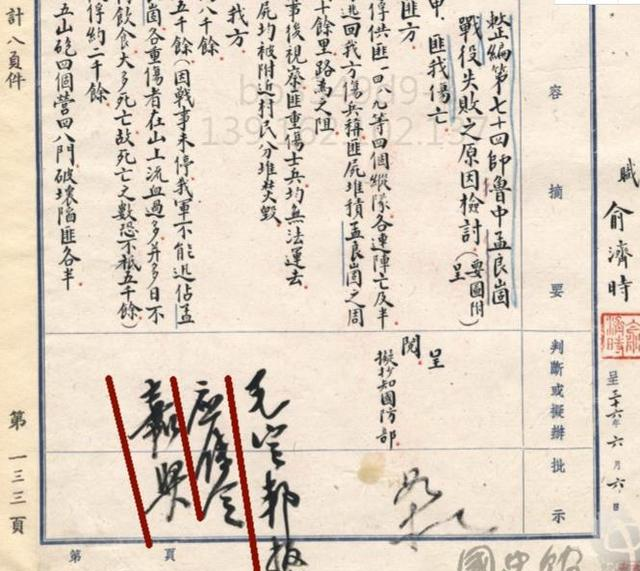 職 俞濟時
呈三十六年六月六日
容摘要
判斷或擬辦
批示
整編第七十四師魯中孟良崮
戰役失敗之原因檢討(要圖附呈)
甲、匪我傷亡
匪方
俘供匪一四八九等四個縱隊各連陣亡及半
逃回我方傷兵稱匪屍堆積孟良崮之周
十餘里路為之阻
事後視察匪重傷士兵均無法運去
屍均被附近村民分堆焚毀
我方
八千餘
五千餘(因戰事未停我軍不能迅佔孟
崮各重傷者在山上流血過多并多日不
得飲食大多死亡故死亡之數恐不祇五千餘)
俘約二千餘
五山砲四個營四八門破壞陷匪各半
呈
閱
擬抄知國防部
應傳令
嘉獎
計八頁件
第一三三頁
第 頁
國史館